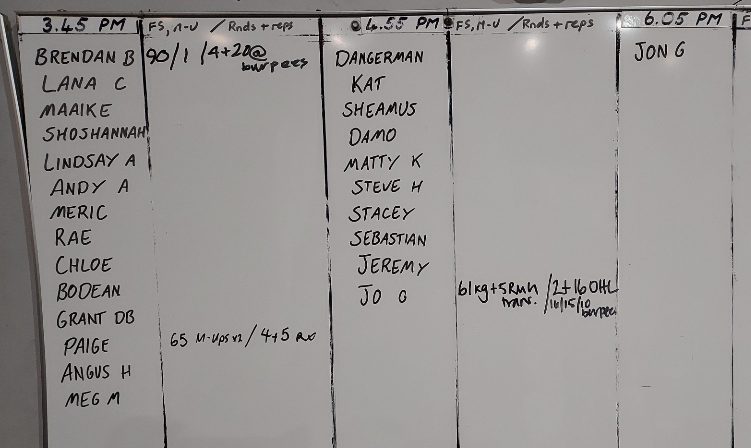 3.45 PM FS, M-U / Rnds + reps
BRENDAN B 90/1 /4+20@
burpees
LANA C
MAAIKE
SHOSHANNAH
LINDSAY A
ANDY A
MERIC
RAE
CHLOE
BODEAN
GRANT DB
PAIGE 65 M-UPS x2 / 4+5 Rx
ANGUS H
MEG M
4.55 PM FS, M-U / Rnds + reps
DANGERMAN
KAT
SHEAMUS
DAMO
MATTY K
STEVE H
STACEY
SEBASTIAN
JEREMY
JO G 61kg+5 /2+16 OHL
tran. /10/15/10
burpees
6.05 PM F
JON G